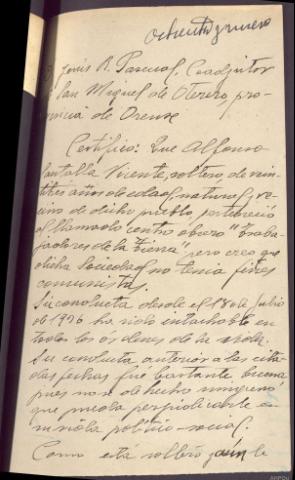 ochenta y nueve
Jesús R. Pascual, Coadjutor
de San Miguel de Otero, pro-
vincia de Orense
Certifico: Que Alfonso
Santalla Vicente, soltero, de vein-
titres años de edad, natural y ve-
cino de dicho pueblo, perteneció
al llamado centro obrero "Traba-
jadores de la tierra" pero creo que
dicha Sociedad no tenia fines
comunista.
Su conducta desde el 18 de Julio
de 1936 ha sido intachable en
todos los órdenes de la vida.
Su conducta anterior a las cita-
das fechas fué bastante buena
pues no se de hecho ninguno
que pueda perjudicarle en
su vida político-social.
Como está soltero